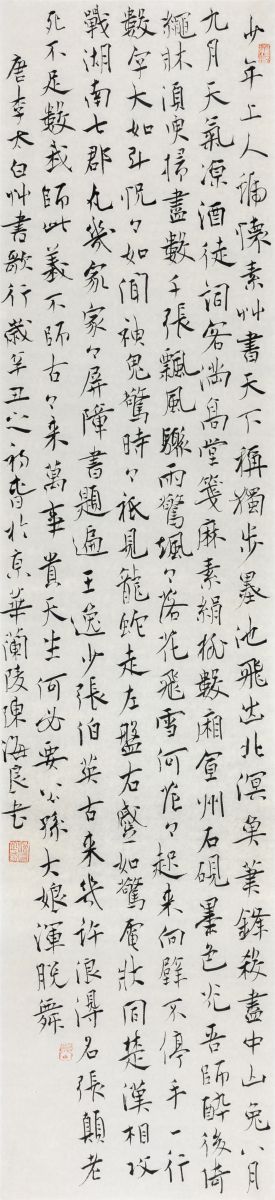 少年上人號懷素艸書天下稱獨步墨池飛出北溟魚筆鋒殺盡中山兔八月
九月天氣凉酒徒詞客滿高堂箋麻素絹排數廂宣州石硯墨色光吾師醉後倚
繩牀須臾掃盡數千張飄風驟雨驚颯々落花飛雪何茫々起來向壁不停手一行
數字大如斗怳々如聞神鬼驚時々祗見龍蛇走左盤右蹙如驚電狀同楚漢相攻
戰湖南七郡凡幾家家々屏障書題遍王逸少張伯英古來幾許浪得名張顛老
死不足數我師此義不師古々來萬事貴天生何必要公孫大娘渾脫舞
唐李太白艸書歌行歲辛丑之初春於京華蘭陵陳海良書